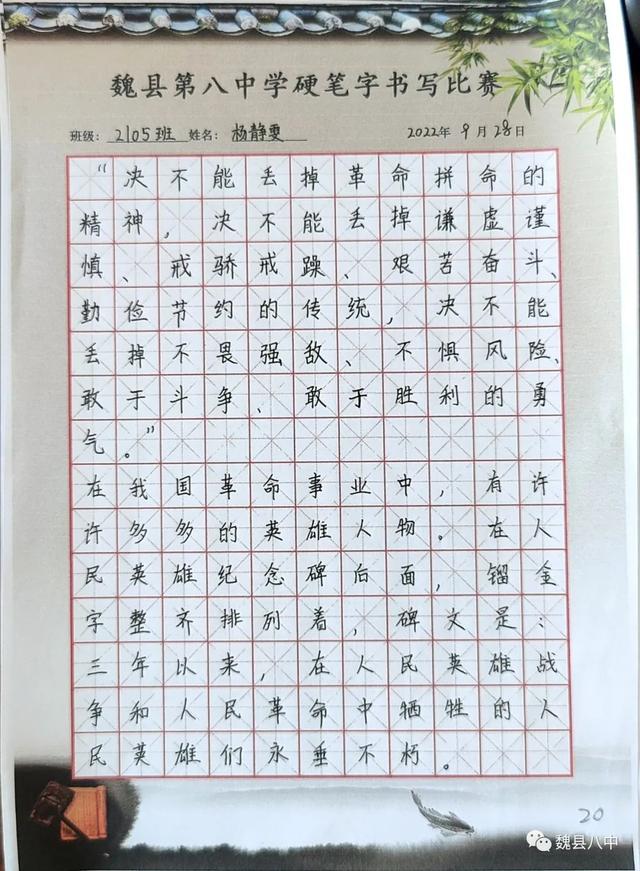 魏县第八中学硬笔字书写比赛
班级：2105班 姓名：杨静雯 2022年9月28日
“决不能丢掉革命拼命的
精神，决不能丢掉谦虚谨
慎、戒骄戒躁、艰苦奋斗、
勤俭节约的传统，决不能
丢掉不畏强敌、不惧风险、
敢于斗争、敢于胜利的勇
气。”
在我国革命事业中，有许
许多多的英雄人物。在人
民英雄纪念碑后面，镏金
字整齐排列着，碑文是：
三年以来，在人民英雄战
争和人民革命中牺牲的人
民英雄们永垂不朽。
20
魏县八中